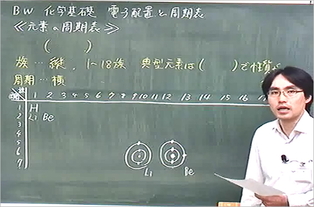 BW 化学基礎 電子配置と周期表
≪元素の周期表≫
(　　)
族…縦、1~18族 典型元素は(　　)で性質
周期…横
1 2 3 4 5 6 7 8 9 10 11 12 13 14 15 16
1 H
2 Li Be
3
4
5
6
7
Li Be